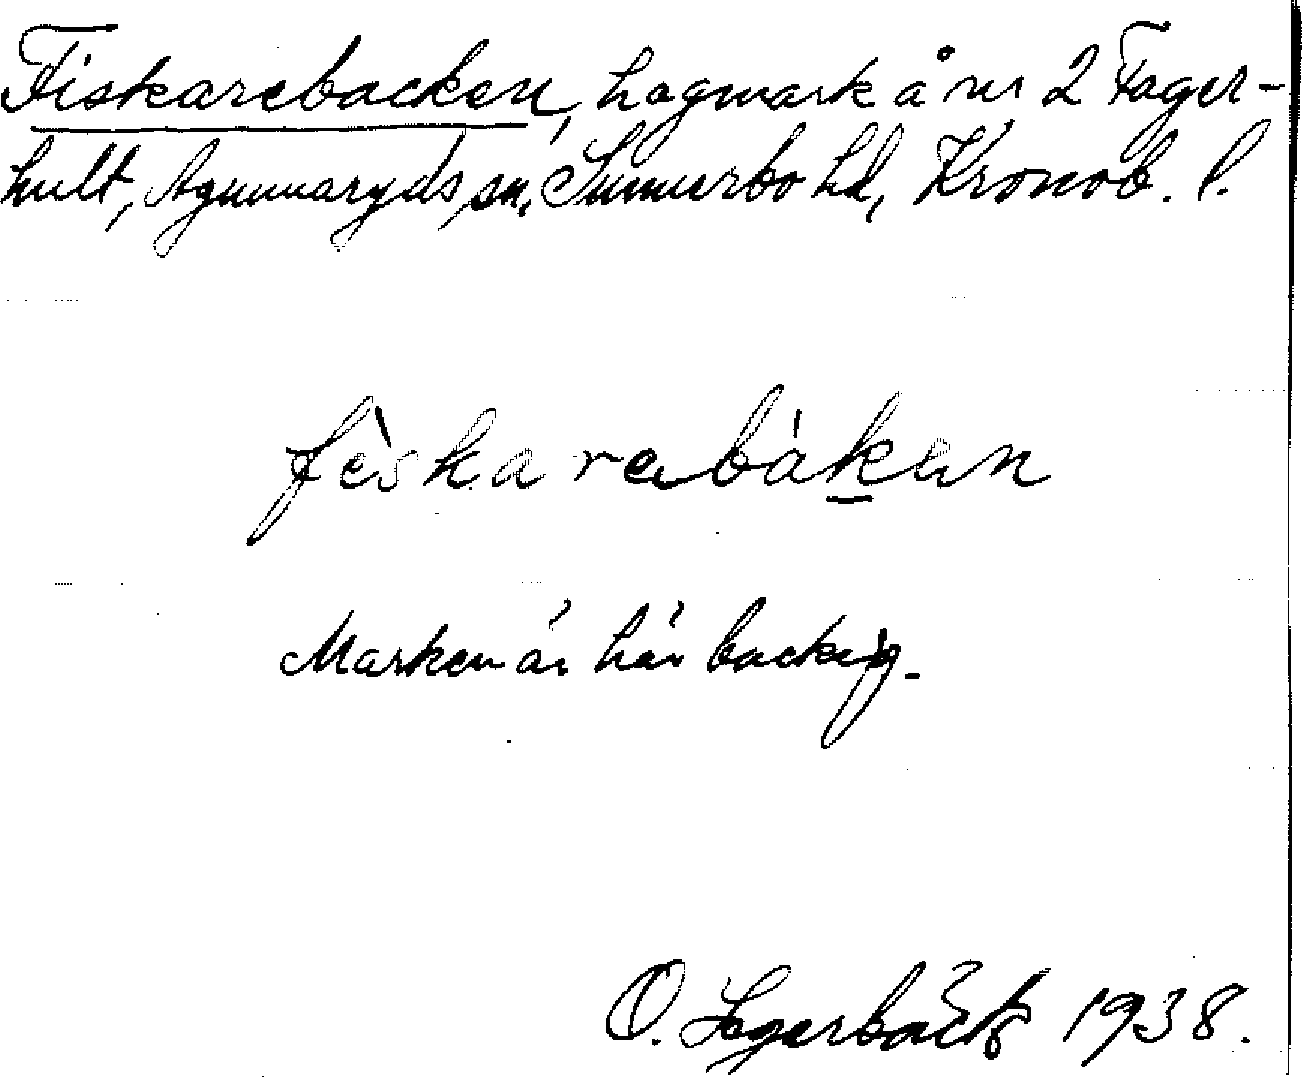 Fiskarebacken, hagmark å nr 2 Fager-
hult, Agunnaryds sn, Sunnerbo hd, Kronob. l.
fèskarebákan
Marken är här backig.
O. Segerbäck 1938.